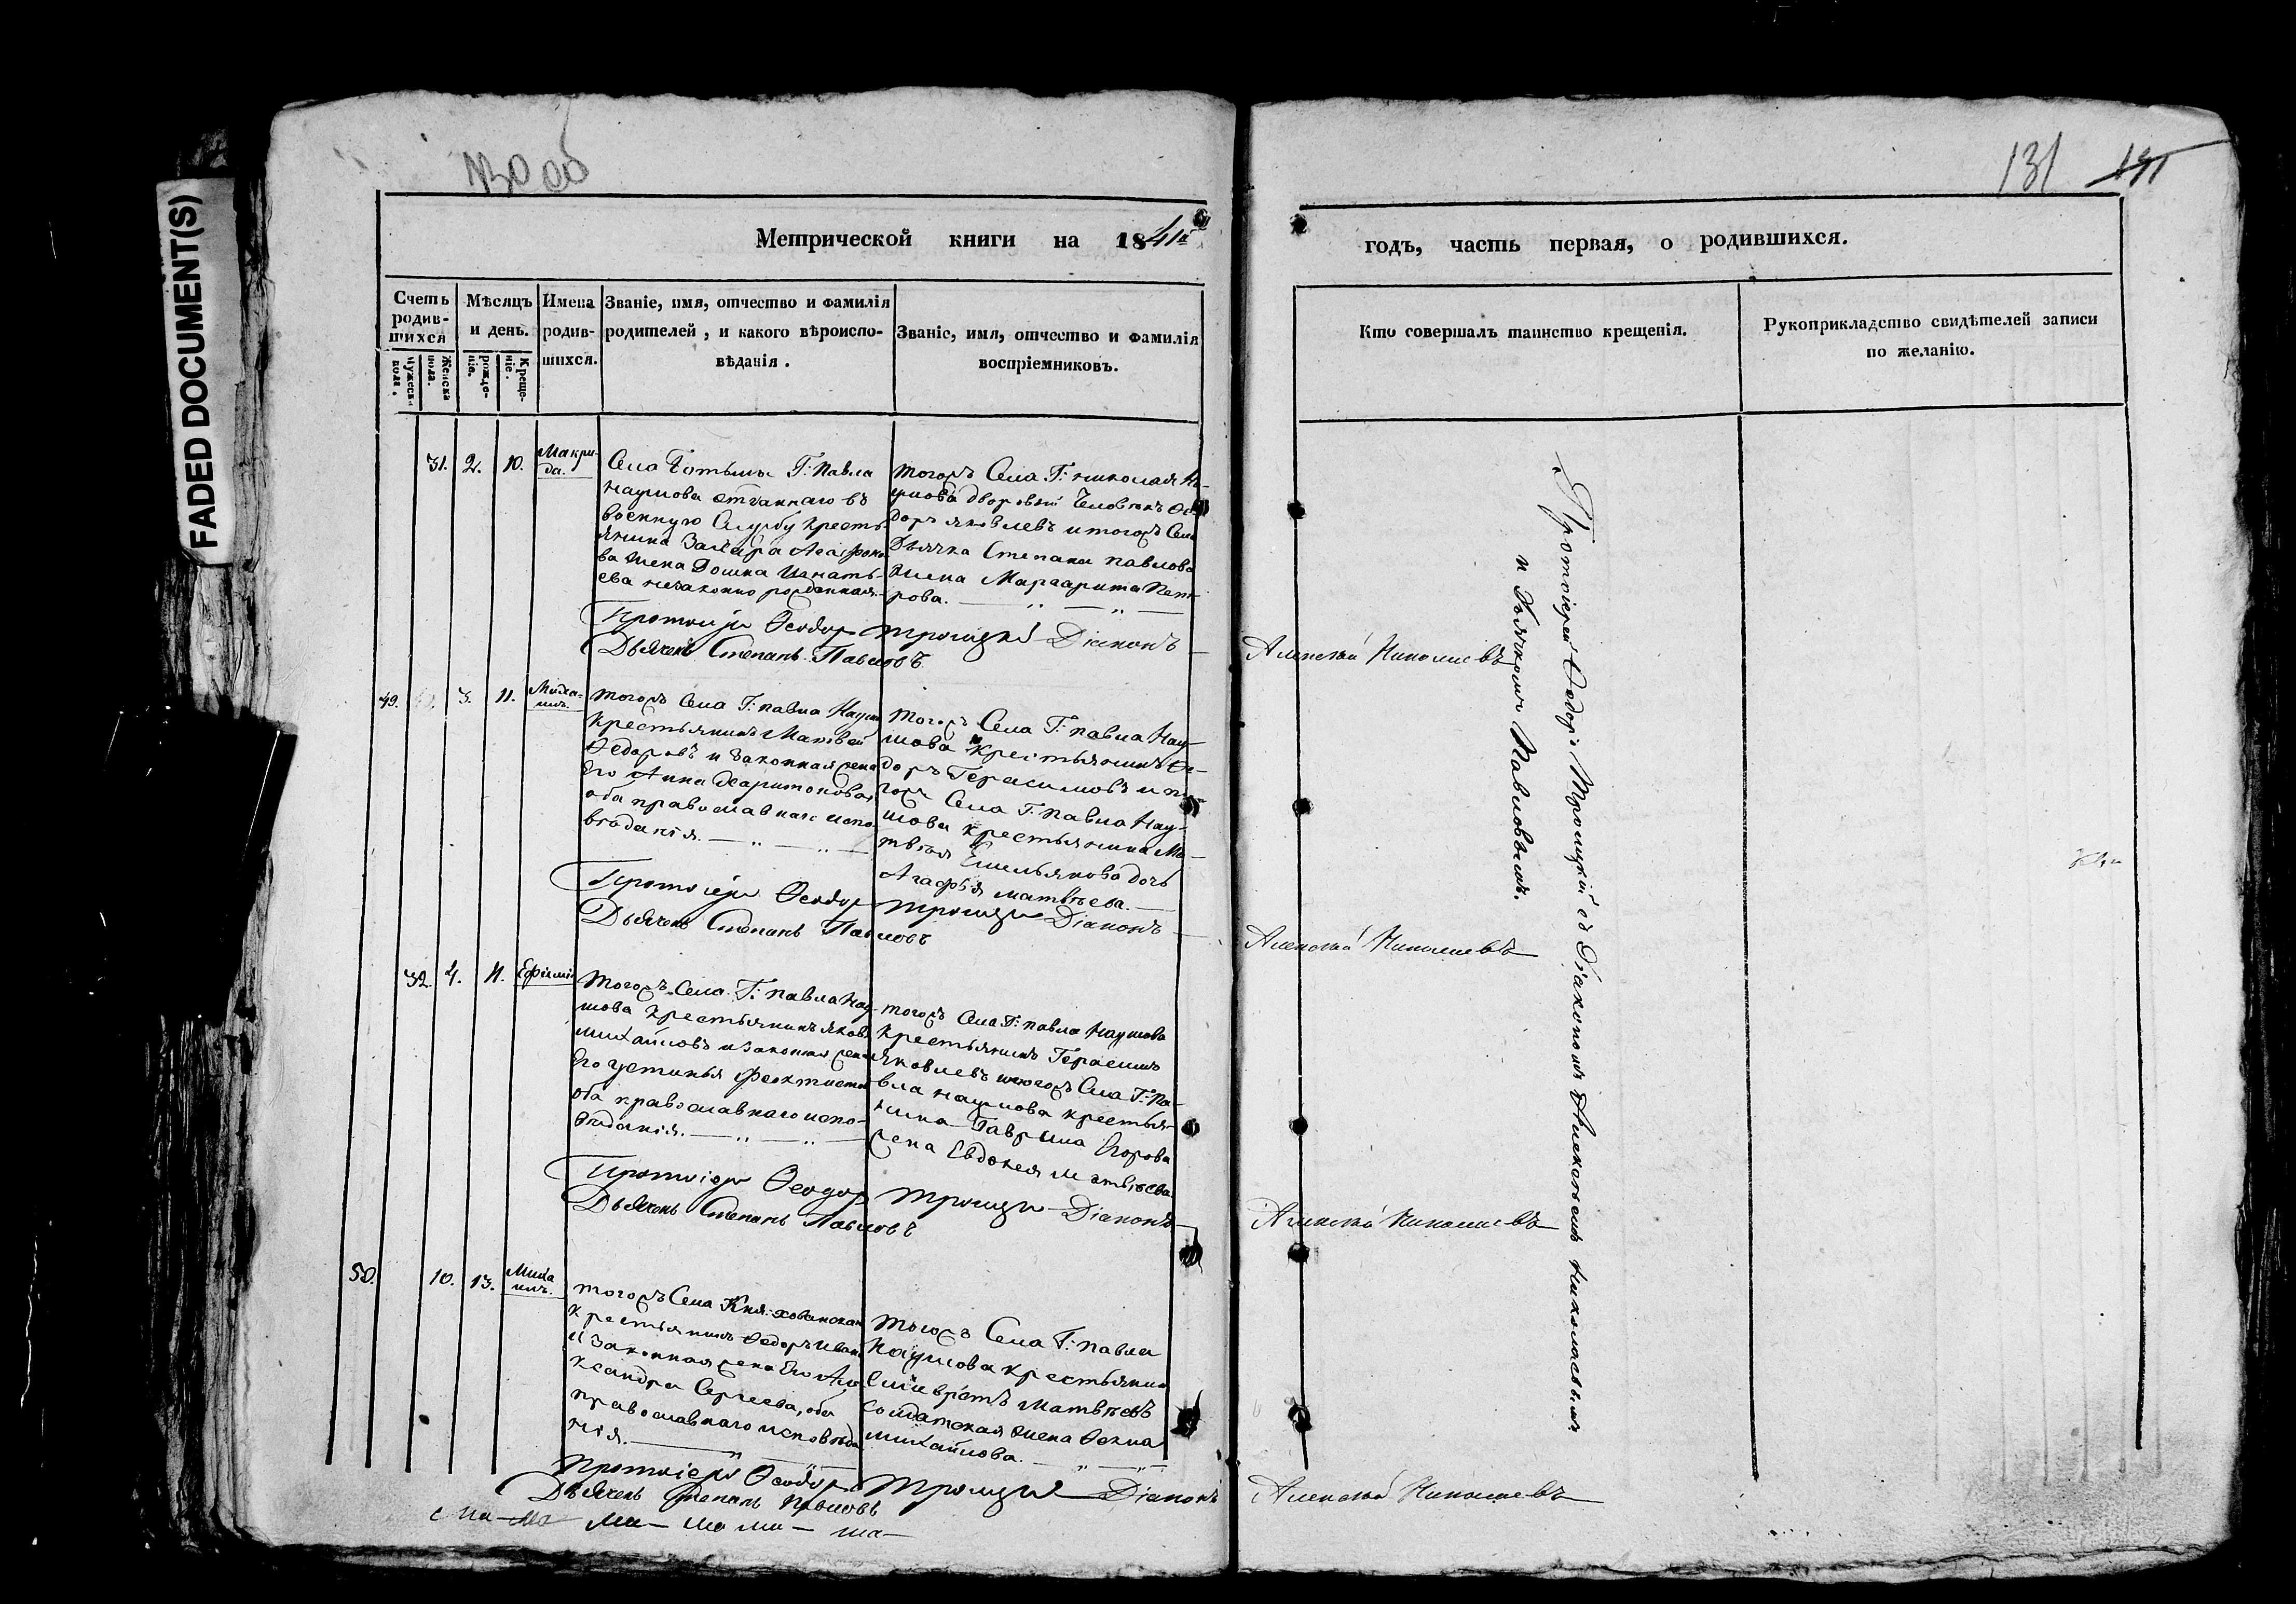 FADED DOCUMENT(S)
130 об
131
Метрической книги на 1841й
годъ, часть первая, о родившихся.
Счетъ родив-шихся
Мужеска пола.
Женска пола.
Мѣсяцъ и день.
рожде-нія.
Креще-ніе.
Имена родив-шихся.
Званіе, имя, отчество и фамилія
родителей, и какого вѣроиспо-
вѣданія.
Званіе, имя, отчество и фамилія
воспріемниковъ.
Кто совершалъ таинство крещенія.
Рукоприкладство свидѣтелей записи
по желанію.
31. 2. 10. Макри-
да.
Села Г: Павла
Наумова отданнаго въ
военную Службу кресть
янина Захара Агафоно
ва жена Домна Игнать-
ева незаконно рожденная
тогожъ Села Г: николая На-
умова дворовый Человѣкъ Ѳе
доръ яковлевъ и тогожъ Села
Дьячка Степана павлова
жена Маргарита Пет-
рова.
Протоіерей Ѳеодоръ Троицкій Діаконъ
Алексѣй Николаевъ
Дьячекъ Степанъ Павловъ
49. 3. 11. Миха-
илъ.
тогожъ Села Г: павла Наум
крестьянинъ Матвей
Ѳедоровъ и законная жена
Его Анна Харитонова
оба православнаго испо
вѣданія.
тогожъ Села Г: павла Нау-
мова крестьянинъ Ѳе-
доръ Герасимовъ и то
гожъ Села Г: павла Нау-
мова крестьянина Ма-
твѣя Емельянова дочь
Агафья матвѣева.
Протоіерей Ѳеодоръ Троицкій Діаконъ
Алексѣй Николаевъ
Дьячекъ Степанъ Павловъ
32. 4. 11. Ефимія
тогожъ Села Г: павла Нау-
мова крестьянинъ яковъ
михайловъ и законная жена
Его устинья Феоктиста
оба православнаго испо-
вѣданія.
тогожъ Села Г: павла Наумова
крестьянинъ Герасимъ
яковлевъ и тогожъ Села Г: Па-
вла наумова крестья-
нина Гаврила Егорова
жена Евдокея матвѣева
Протоіерей Ѳеодоръ Троицкій Діаконъ
Алексѣй Николаевъ
Дьячекъ Степанъ Павловъ
50. 10. 13. Миха
илъ.
тогожъ Села Кня: хованскаго
крестьянинъ Ѳедоръ Иван
и законная жена Его Але
ксандра Сергеева, оба
православнаго исповѣда
нія.
тогожъ Села Г: павла
Наумова крестьянин
матвѣевъ
солдатская жена Ѳекла
михайлова.
Протоіерей Ѳеодоръ Троицкій Діаконъ
Алексѣй Николаевъ
Дьячекъ Степанъ Павловъ
Протоіерей Ѳедоръ Троицкій съ Діакономъ Алексѣемъ Николаевымъ
и Дьячкомъ Павловымъ.